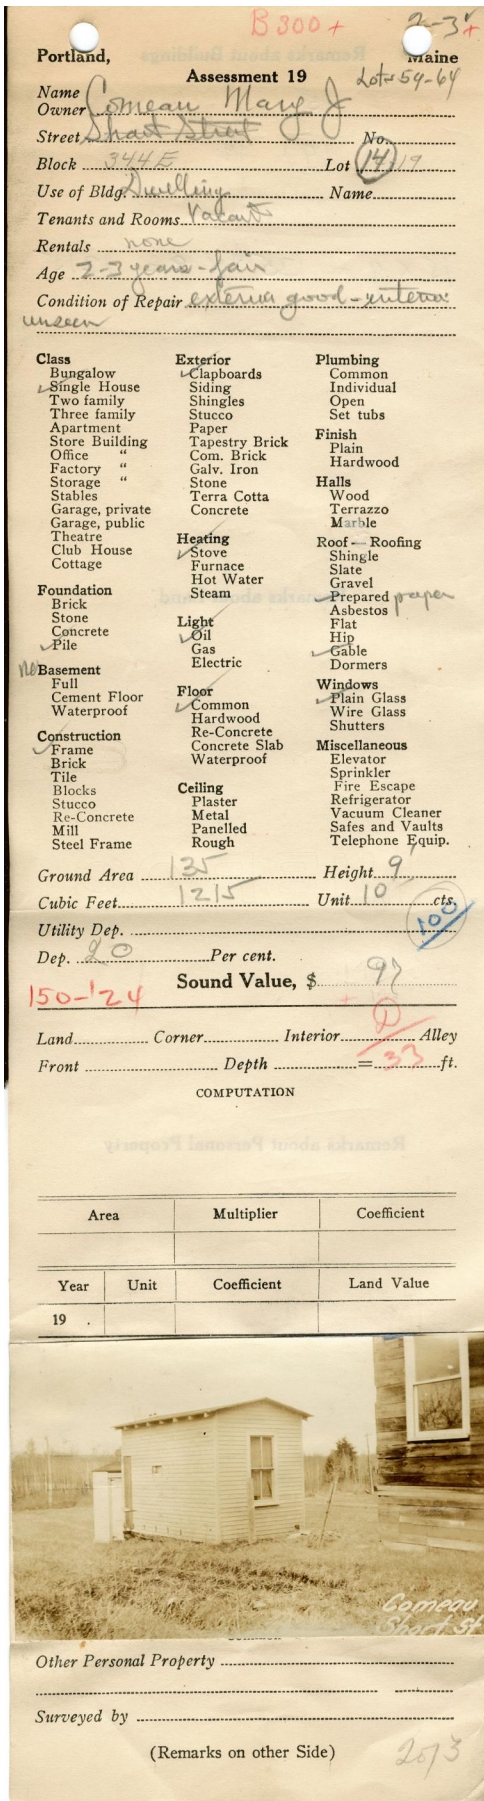 B 300 +
2-3
+
Portland, Maine
Assessment 19
Lots 54-64
Name
Owner Comeau Mary J
Street Short Street No.
Block 344E Lot 14 19
Use of Bldg. Dwelling Name
Tenants and Rooms Vacant
Rentals none
Age 2-3 years - fair
Condition of Repair exterior good - interior
unseen
Class
Bungalow
✓ Single House
Two family
Three family
Apartment
Store Building
Office "
Factory "
Storage "
Stables
Garage, private
Garage, public
Theatre
Club House
Cottage
Foundation
Brick
Stone
Concrete
✓ Pile
no Basement
Full
Cement Floor
Waterproof
Construction
✓ Frame
Brick
Tile
Blocks
Stucco
Re-Concrete
Mill
Steel Frame
Exterior
✓ Clapboards
Siding
Shingles
Stucco
Paper
Tapestry Brick
Com. Brick
Galv. Iron
Stone
Terra Cotta
Concrete
Heating
✓ Stove
Furnace
Hot Water
Steam
Light
✓ Oil
Gas
Electric
Floor
✓ Common
Hardwood
Re-Concrete
Concrete Slab
Waterproof
Ceiling
Plaster
Metal
Panelled
Rough
Plumbing
Common
Individual
Open
Set tubs
Finish
Plain
Hardwood
Halls
Wood
Terrazzo
Marble
Roof — Roofing
Shingle
Slate
Gravel
✓ Prepared paper
Asbestos
Flat
Hip
✓ Gable
Dormers
Windows
✓ Plain Glass
Wire Glass
Shutters
Miscellaneous
Elevator
Sprinkler
Fire Escape
Refrigerator
Vacuum Cleaner
Safes and Vaults
Telephone Equip.
Ground Area 135 Height 9'
Cubic Feet 1215 Unit 10 cts.
100
Utility Dep.
Dep. 20 Per cent.
Sound Value, $ 97
150-'24
+ D
33
Land Corner Interior Alley
Front Depth = ft.
COMPUTATION
Area Multiplier Coefficient
Year Unit Coefficient Land Value
19 .
Comeau
Short St
Other Personal Property
Surveyed by
(Remarks on other Side)
2013